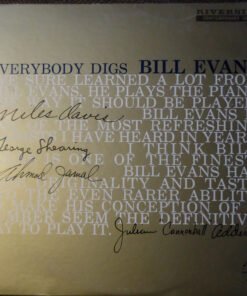 RIVERSIDE
VERYBODY DIGS BILL EVAN
E SURE LEARNED A LOT FROM
BILL EVANS. HE PLAYS THE PIAN
SHOULD BE PLAYED
Miles Davis BILL EVANS
OF THE MOST REFRESHIN
HAVE HEARD IN YEAR
George Shearing THINK BILL
IS ONE OF THE FINES
Ahmad Jamal BILL EVANS HA
ORIGINALITY AND TAST
EVEN RARER ABILI
HIS CONCEPTION OF
MBER SEEM THE DEFINITIV
Y TO PLAY IT. Julian Cannonball Adderl